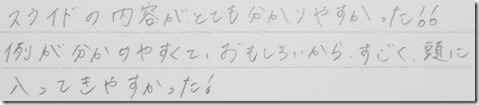 スライドの内容がとても分かりやすかった!!
例が分かりやすくて、おもしろいから、すごく、頭に
入ってきやすかった!